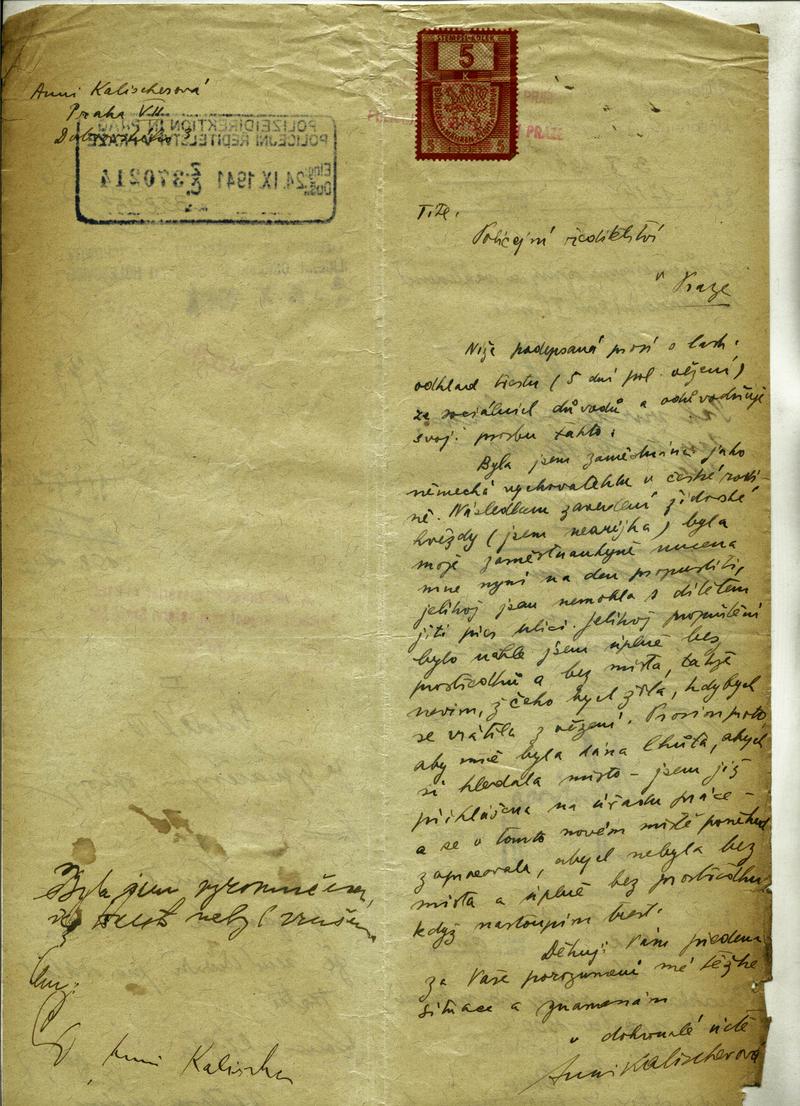 Anni Kalischerová
Praha VII.
POLIZEIDIREKTION IN PRAG
POLICEJNÍ ŘEDITELSTVÍ V PRAZE
Eing.
Došlo 24. IX. 1941 370214
STEMPEL-KOLEK
5
K
5 5
PRAZE
Titl.
Policejní ředitelství
v Praze
Níže podepsaná prosí o lask.
odklad trestu (5 dní pol. vězení)
ze sociálních důvodů a odůvodňuje
svoji prosbu takto:
Byla jsem zaměstnána jako
německá vychovatelka v české rodi-
ně. Následkem zavedení židovské
hvězdy (jsem nearijka) byla
moje zaměstnavatelkyně nucena
mne nyní na den propustiti,
jelikož jsem nemohla s dítětem
jíti přes ulici. Jelikož propuštění
bylo náhlé jsem úplně bez
prostředků a bez místa, takže
nevím, z čeho bych žila, kdybych
se vrátila z vězení. Prosím proto,
aby mně byla dána lhůta, abych
si hledala místo – jsem již
přihlášena na úřadu práce –
a se v tomto novém místě poněkud
zapracovala, abych nebyla bez
místa a úplně bez prostředků,
když nastoupím trest.
Děkuji Vám předem
za Vaše porozumění mé těžké
situace a znamenám
v dokonalé úctě
Anni Kalischerová
Byla jsem vyrozuměna,
že trest nebyl zrušen
Anni Kalischer